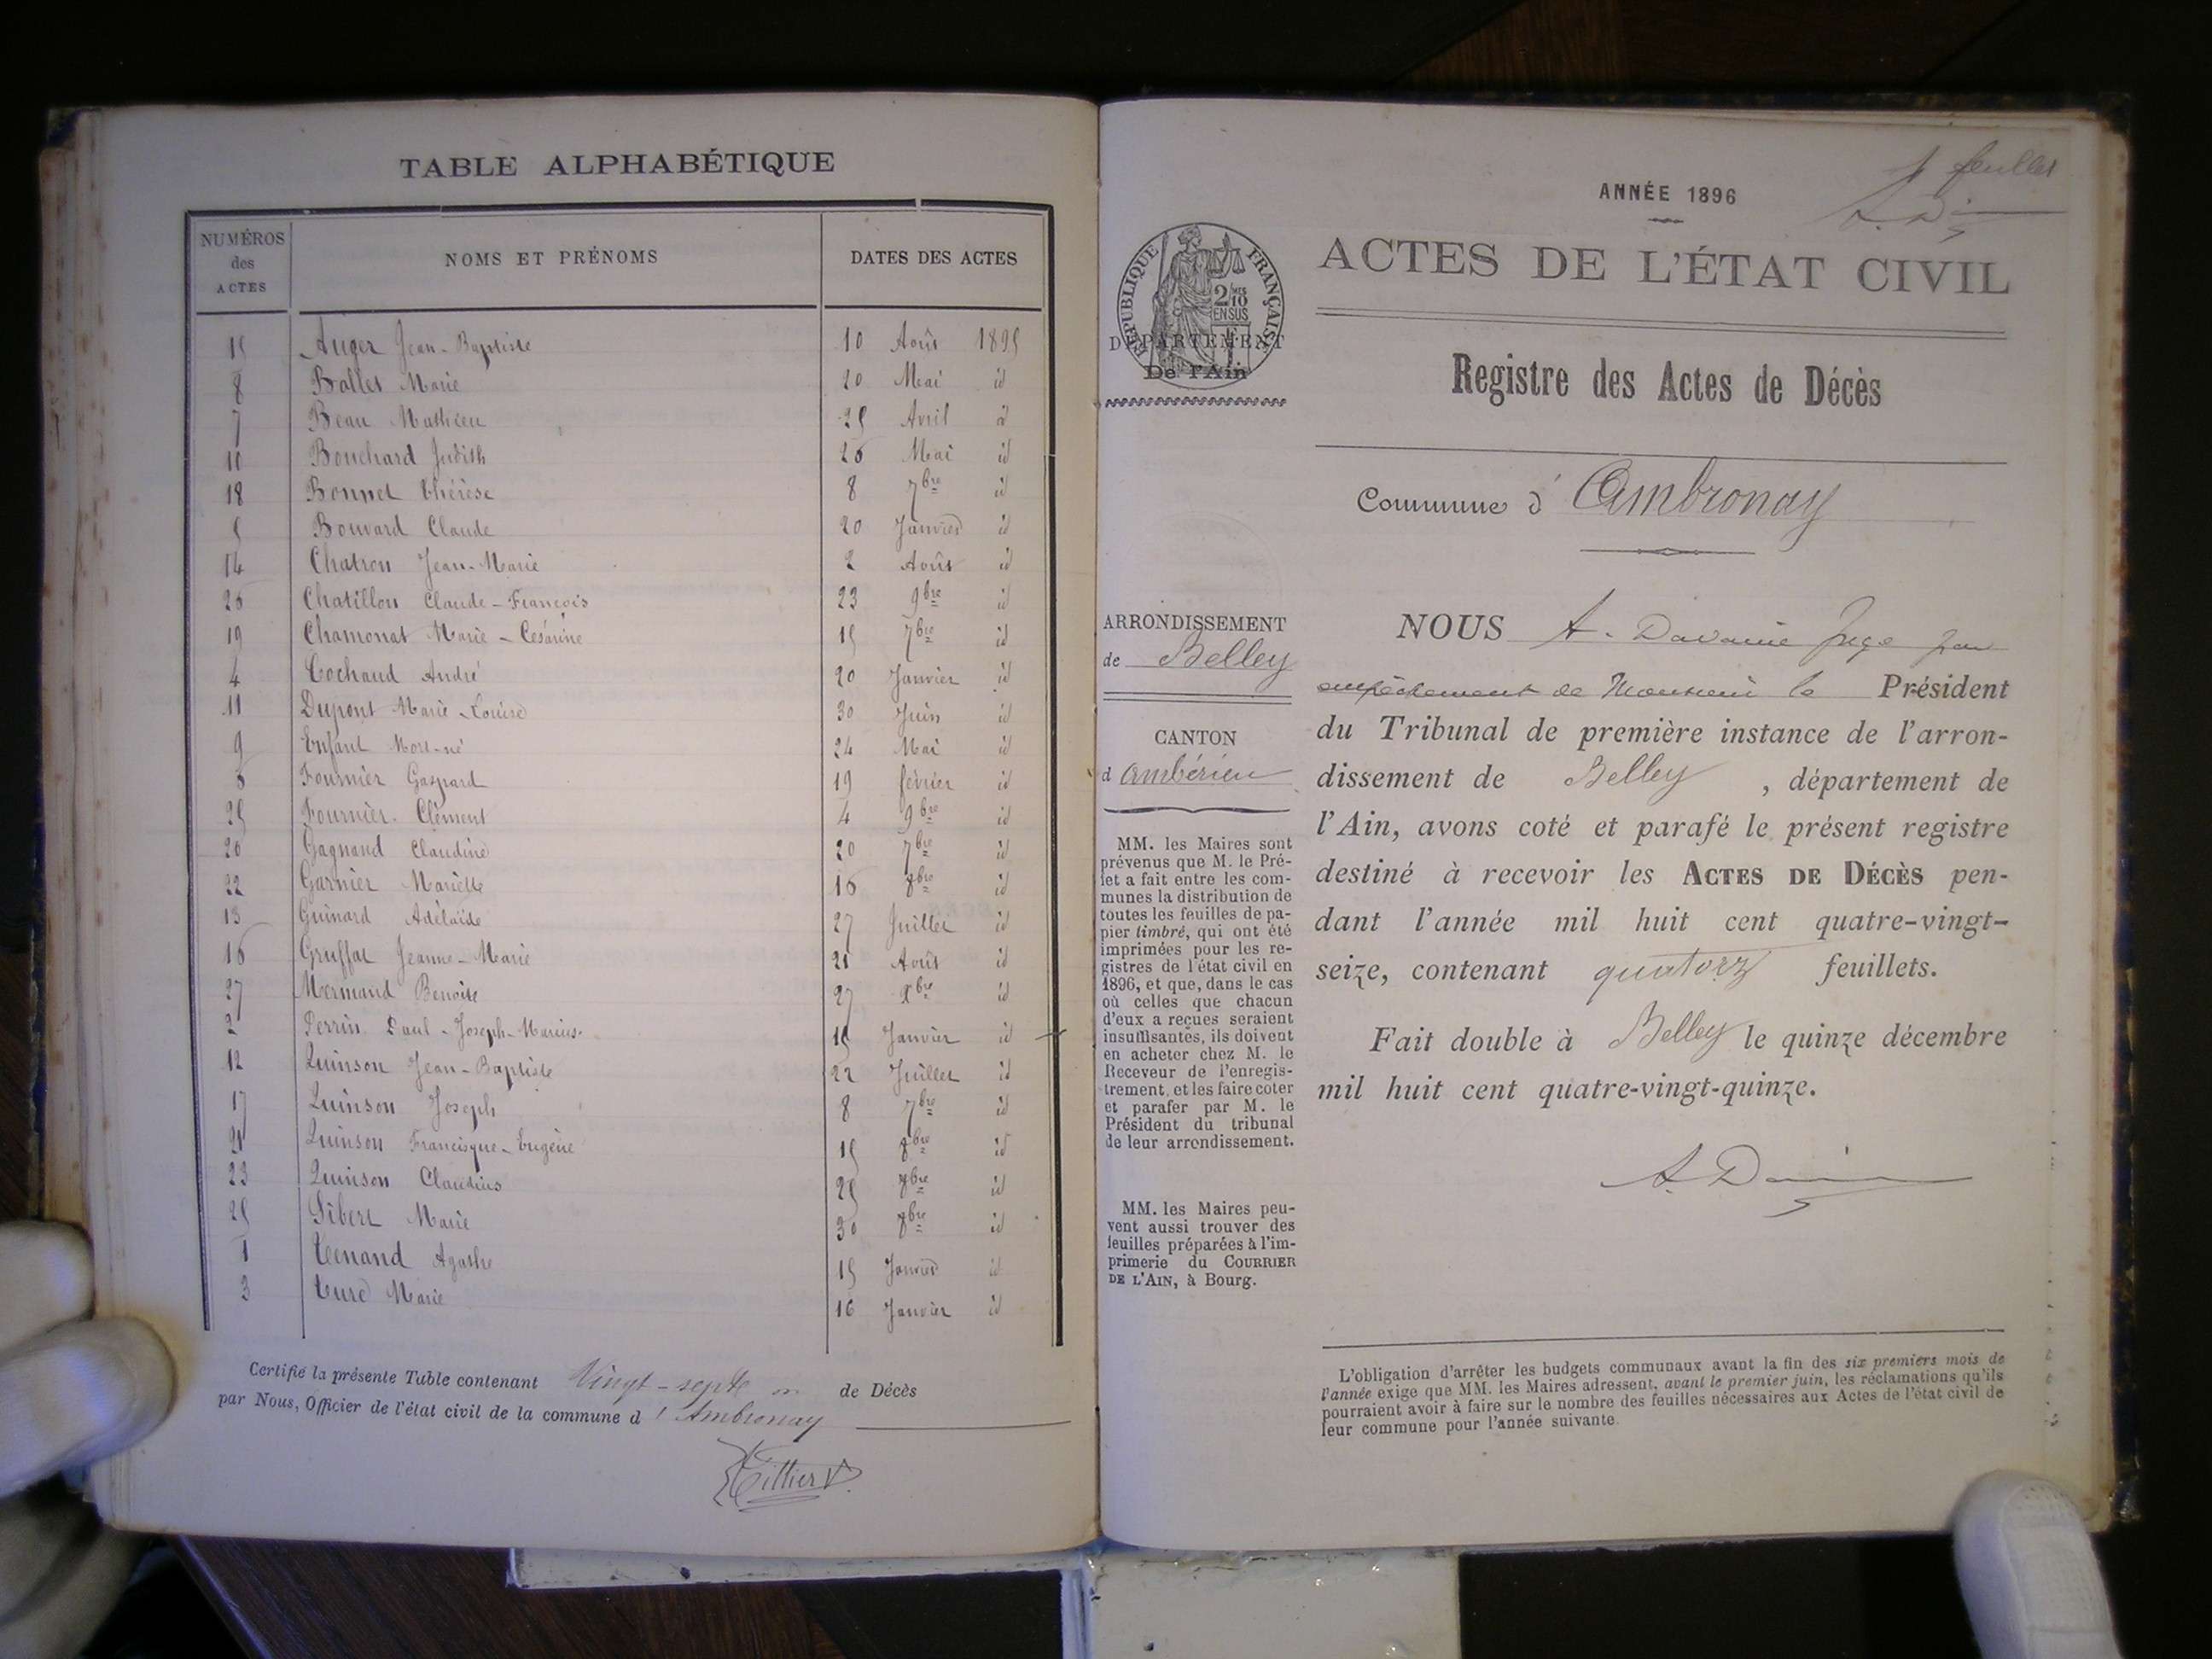 TABLE ALPHABÉTIQUE
NUMÉROS des ACTES NOMS ET PRÉNOMS DATES DES ACTES
15 Auger Jean-Baptiste 10 Août 1895
8 Ballet Marie 20 Mai id
7 Beau Mathieu 25 Avril id
10 Bouchard Judith 26 Mai id
18 Bonnet Thérèse 8 7bre id
5 Bouvard Claude 20 Janvier id
14 Chatron Jean-Marie 2 Août id
26 Chatillon Claude-François 23 9bre id
19 Chamonat Marie-Césarine 15 7bre id
4 Cochaud André 20 Janvier id
11 Dupont Marie-Louise 30 Juin id
9 Enfant Mort-né 24 Mai id
6 Fournier Gaspard 19 février id
25 Fournier Clément 4 9bre id
20 Gagnand Claudine 20 7bre id
22 Garnier Mariette 16 8bre id
13 Guinard Adélaïde 27 Juillet id
16 Gruffat Jeanne-Marie 21 Août id
27 Mermand Benoîte 27 xbre id
2 Perrin Paul-Joseph-Marius 15 Janvier id
12 Quinson Jean-Baptiste 22 Juillet id
17 Quinson Joseph 8 7bre id
21 Quinson Francisque-Eugène 15 8bre id
23 Quinson Claudius 25 8bre id
Sibert Marie 30 8bre id
1 Tenand Agathe 15 Janvier id
3 Ture Marie 16 Janvier id
Certifié la présente Table contenant Vingt-sept de Décès
par Nous, Officier de l'état civil de la commune d'Ambronay
Tillier
feuillet
ANNÉE 1896
ACTES DE L'ÉTAT CIVIL
RÉPUBLIQUE FRANÇAISE
2/10 MES EN SUS
DÉPARTEMENT
De l'Ain
Registre des Actes de Décès
Commune d'Ambronay
ARRONDISSEMENT
de Belley
CANTON
d'Ambérieu
MM. les Maires sont
prévenus que M. le Pré-
fet a fait entre les com-
munes la distribution de
toutes les feuilles de pa-
pier timbré, qui ont été
imprimées pour les re-
gistres de l'état civil en
1896, et que, dans le cas
où celles que chacun
d'eux a reçues seraient
insuffisantes, ils doivent
en acheter chez M. le
Receveur de l'enregis-
trement, et les faire coter
et parafer par M. le
Président du tribunal
de leur arrondissement.
MM. les Maires peu-
vent aussi trouver des
feuilles préparées à l'im-
primerie du COURRIER
DE L'AIN, à Bourg.
NOUS A. Juge par
empêchement de Monsieur le Président
du Tribunal de première instance de l'arron-
dissement de Belley, département de
l'Ain, avons coté et parafé le présent registre
destiné à recevoir les ACTES DE DÉCÈS pen-
dant l'année mil huit cent quatre-vingt-
seize, contenant quatorze feuillets.
Fait double à Belley le quinze décembre
mil huit cent quatre-vingt-quinze.
L'obligation d'arrêter les budgets communaux avant la fin des six premiers mois de
l'année exige que MM. les Maires adressent, avant le premier juin, les réclamations qu'ils
pourraient avoir à faire sur le nombre des feuilles nécessaires aux Actes de l'état civil de
leur commune pour l'année suivante.